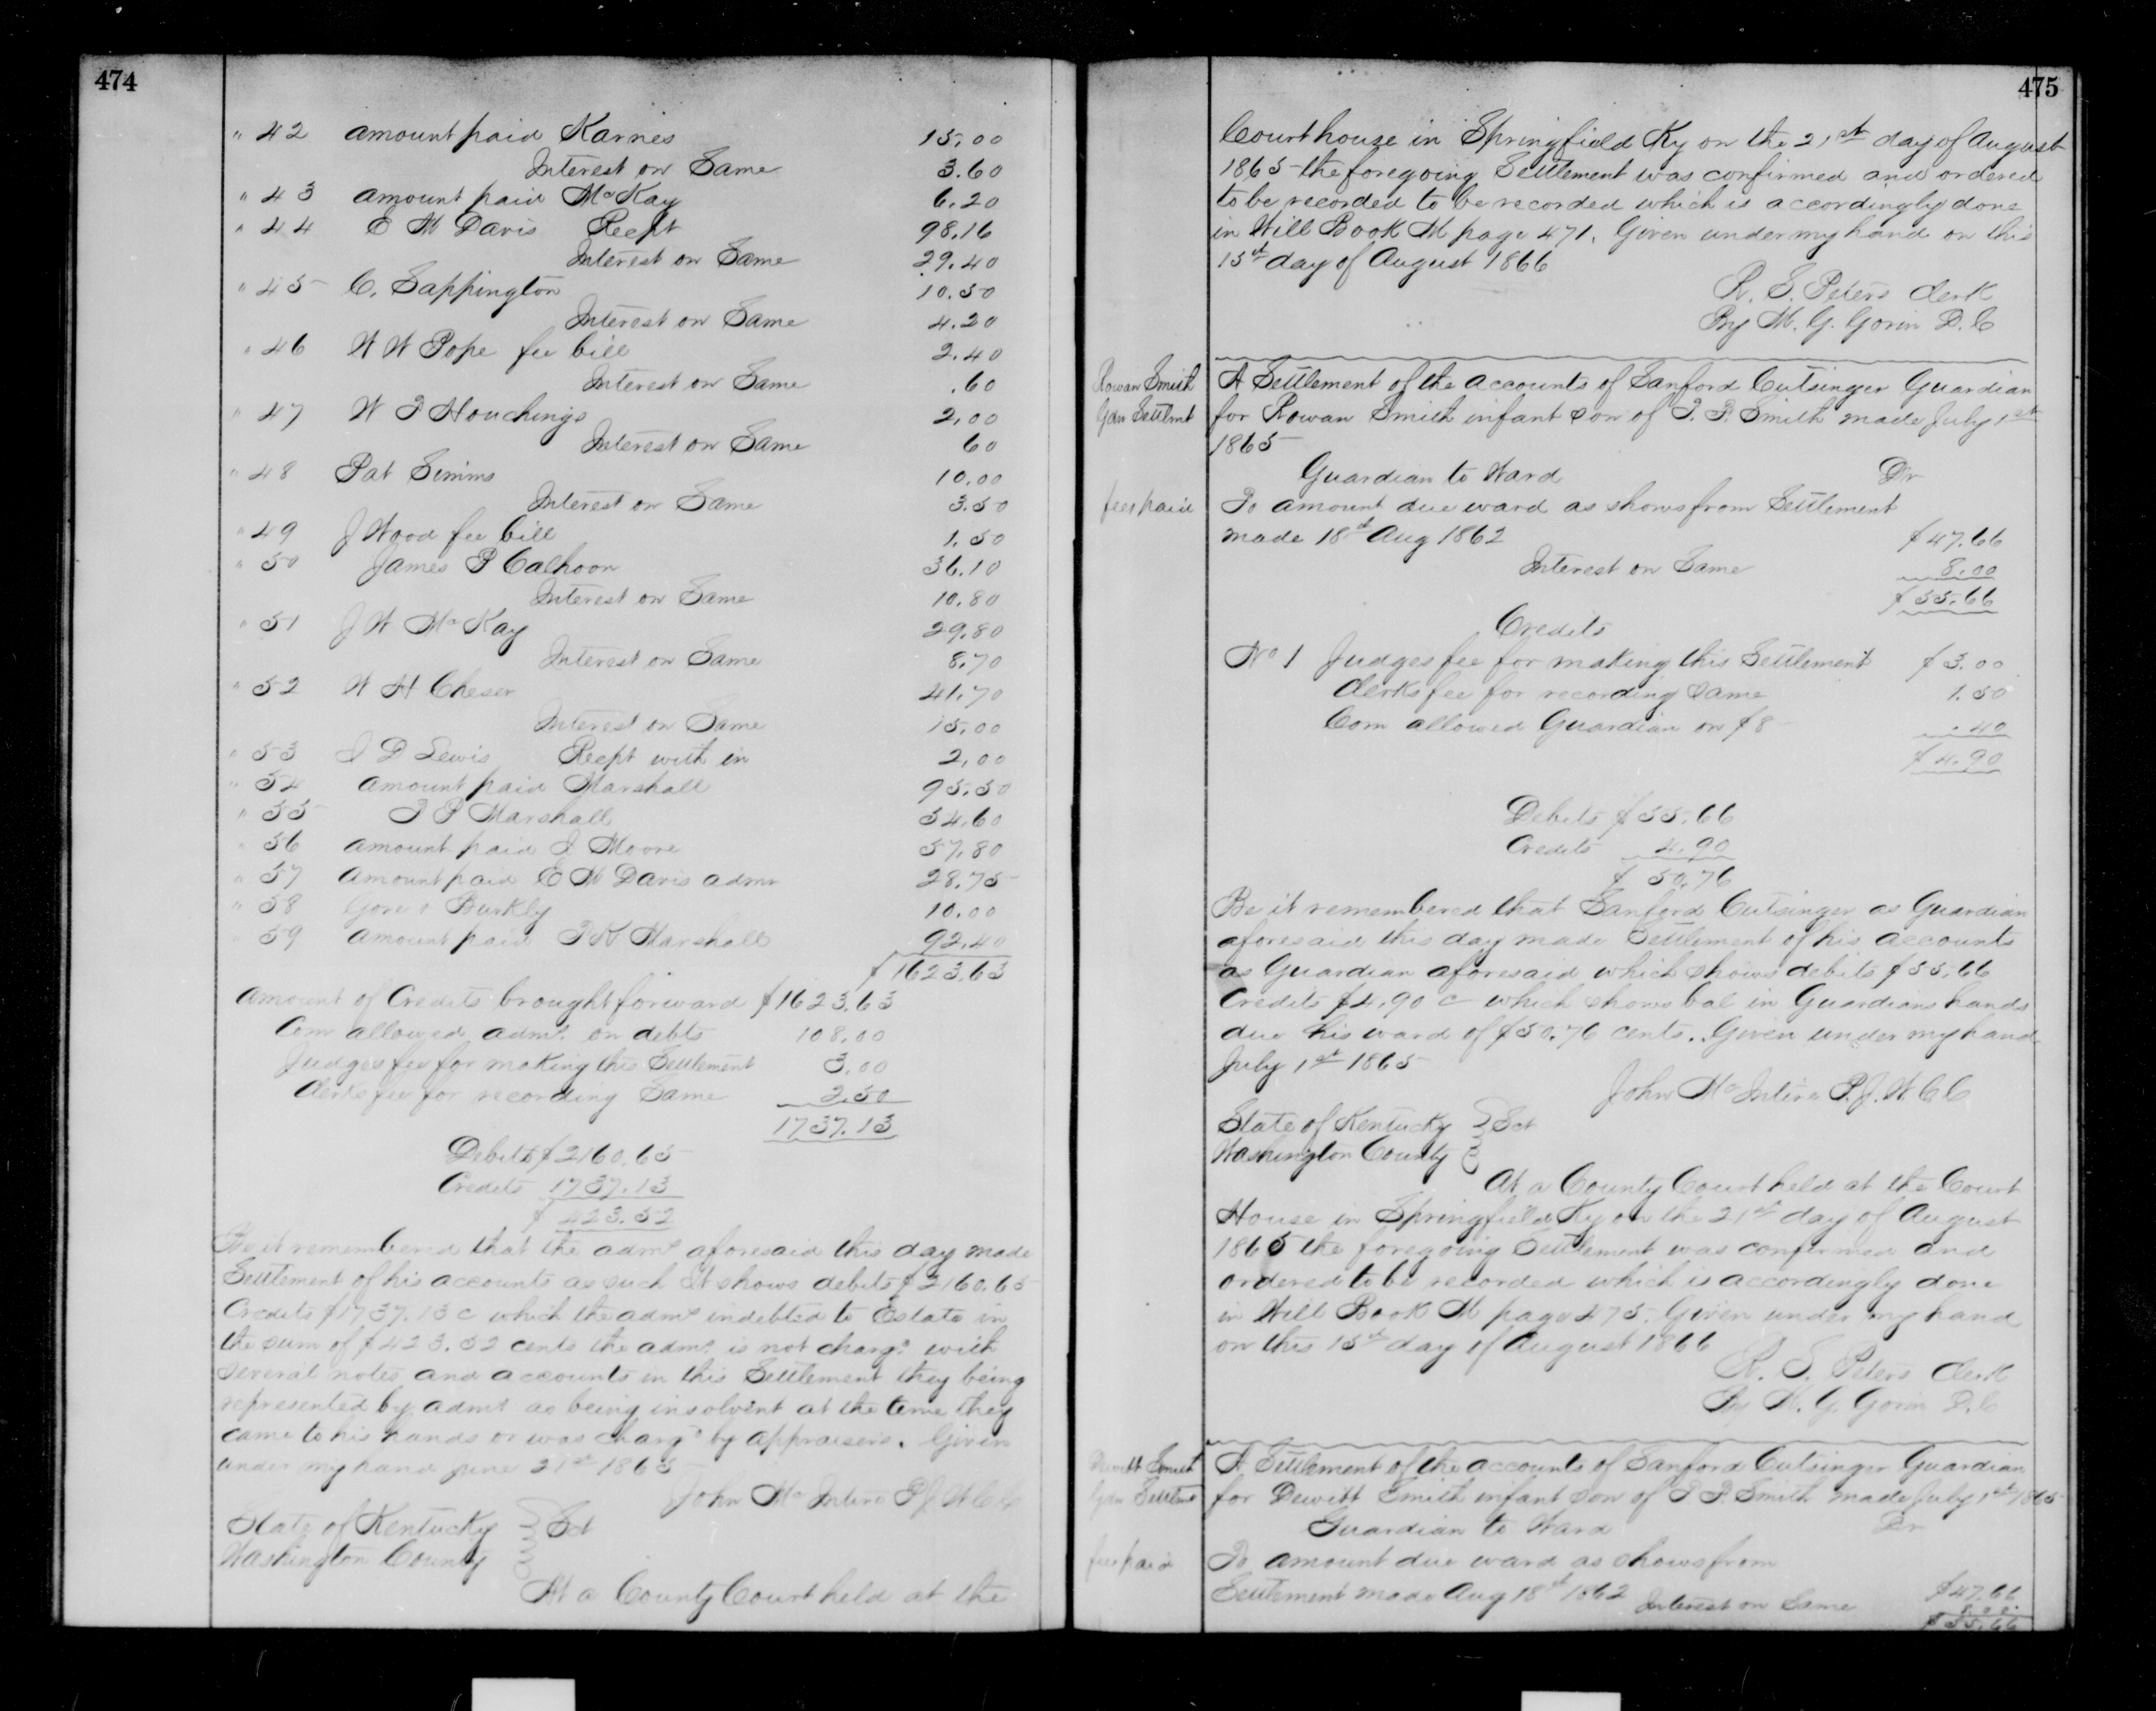 474
" 42 amount paid Karnes 15.00
Interest on Same 3.60
" 43 amount paid McKay 6.20
" 44 E M Davis Recpt 98.16
Interest on Same 29.40
" 45 C. Sappington 10.50
Interest on Same 4.20
" 46 W W Pope fee bill 2.40
Interest on Same .60
" 47 W T Houchings 2,00
Interest on Same 60
" 48 Pat Simms 10.00
Interest on Same 3.50
" 49 J Wood fee bill 1.50
" 50 James P Calhoon 36.10
Interest on Same 10.80
" 51 J W McKay 29.80
Interest on Same 8.70
" 52 W H Cheser 41.70
Interest on Same 15.00
" 53 J D Lewis Recpt with in 2,00
" 54 amount paid Marshall 95.50
" 55 T P Marshall 54.60
" 56 amount paid J Moore 57.80
" 57 amount paid E M Davis admr 28.75
" 58 Gore & Burkly 10.00
59 amount paid T K Marshall 92.40
$1623.63
Amount of Credits brought forward $1623.63
Com allowed admr. on debts 108.00
Judges fee for making this Settlement 3.00
Clerks fee for recording Same 2.50
1737.13
Debits $2160.65
Credits 1737.13
$ 423.52
Be it remembered that the admr aforesaid this day made
Settlement of his accounts as such It shows debits $2160.65
Credits $1737.13 c which the admr indebted to Estate in
the sum of $423.52 cents the admr. is not chargd with
several notes and accounts in this Settlement they being
represented by admr as being insolvent at the time they
came to his hands or was chargd by appraisers. Given
under my hand June 21st 1865
John McIntire P J W C C
State of Kentucky } Sct
Washington County
At a County Court held at the
475
Courthouse in Springfield Ky on the 21st day of August
1865 the foregoing Settlement was confirmed and ordered
to be recorded to be recorded which is accordingly done
in Will Book M page 471. Given under my hand on this
15th day of August 1866
R. S. Peters Clerk
By M. G. Gorin D. C
Rowan Smith
Gdn Settlmt
A Settlement of the accounts of Sanford Cutsinger Guardian
for Rowan Smith infant son of T. P. Smith made July 1st
1865
Guardian to Ward Dr
fees paid
To amount due ward as shows from Settlement
made 18th Aug 1862 $47.66
Interest on Same 8.00
$55.66
Credits
No 1 Judges fee for making this Settlement $3.00
Clerks fee for recording same 1.50
Com allowed Guardian on $8 .40
$4.90
Debits $55.66
Credits 4.90
$ 50.76
Be it remembered that Sanford Cutsinger as Guardian
aforesaid this day made Settlement of his accounts
as Guardian aforesaid which shows debits $55.66
Credits $4.90 c which shows bal in Guardians hands
due his ward of $50.76 cents. Given under my hand
July 1st 1865
John McIntire P. J. W C C
State of Kentucky } Sct
Washington County
At a County Court held at the Court
House in Springfield Ky on the 21st day of August
1865 the foregoing Settlement was confirmed and
ordered to be recorded which is accordingly done
in Will Book M page 475. Given under my hand
on this 15th day of August 1866
R. S. Peters Clerk
By M. G. Gorin D. C
Dewitt Smith
Gdn Settlmt
A Settlement of the accounts of Sanford Cutsinger Guardian
for Dewitt Smith infant son of T P. Smith made July 1st 1865
Guardian to Ward Dr
fees paid
To amount due ward as shows from
Settlement made Aug 18th 1862 $47.66
Interest on Same 8.00
$55.66